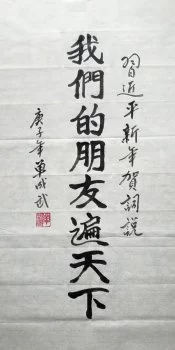 習近平新年賀詞說
我們的朋友遍天下
庚子年單成武